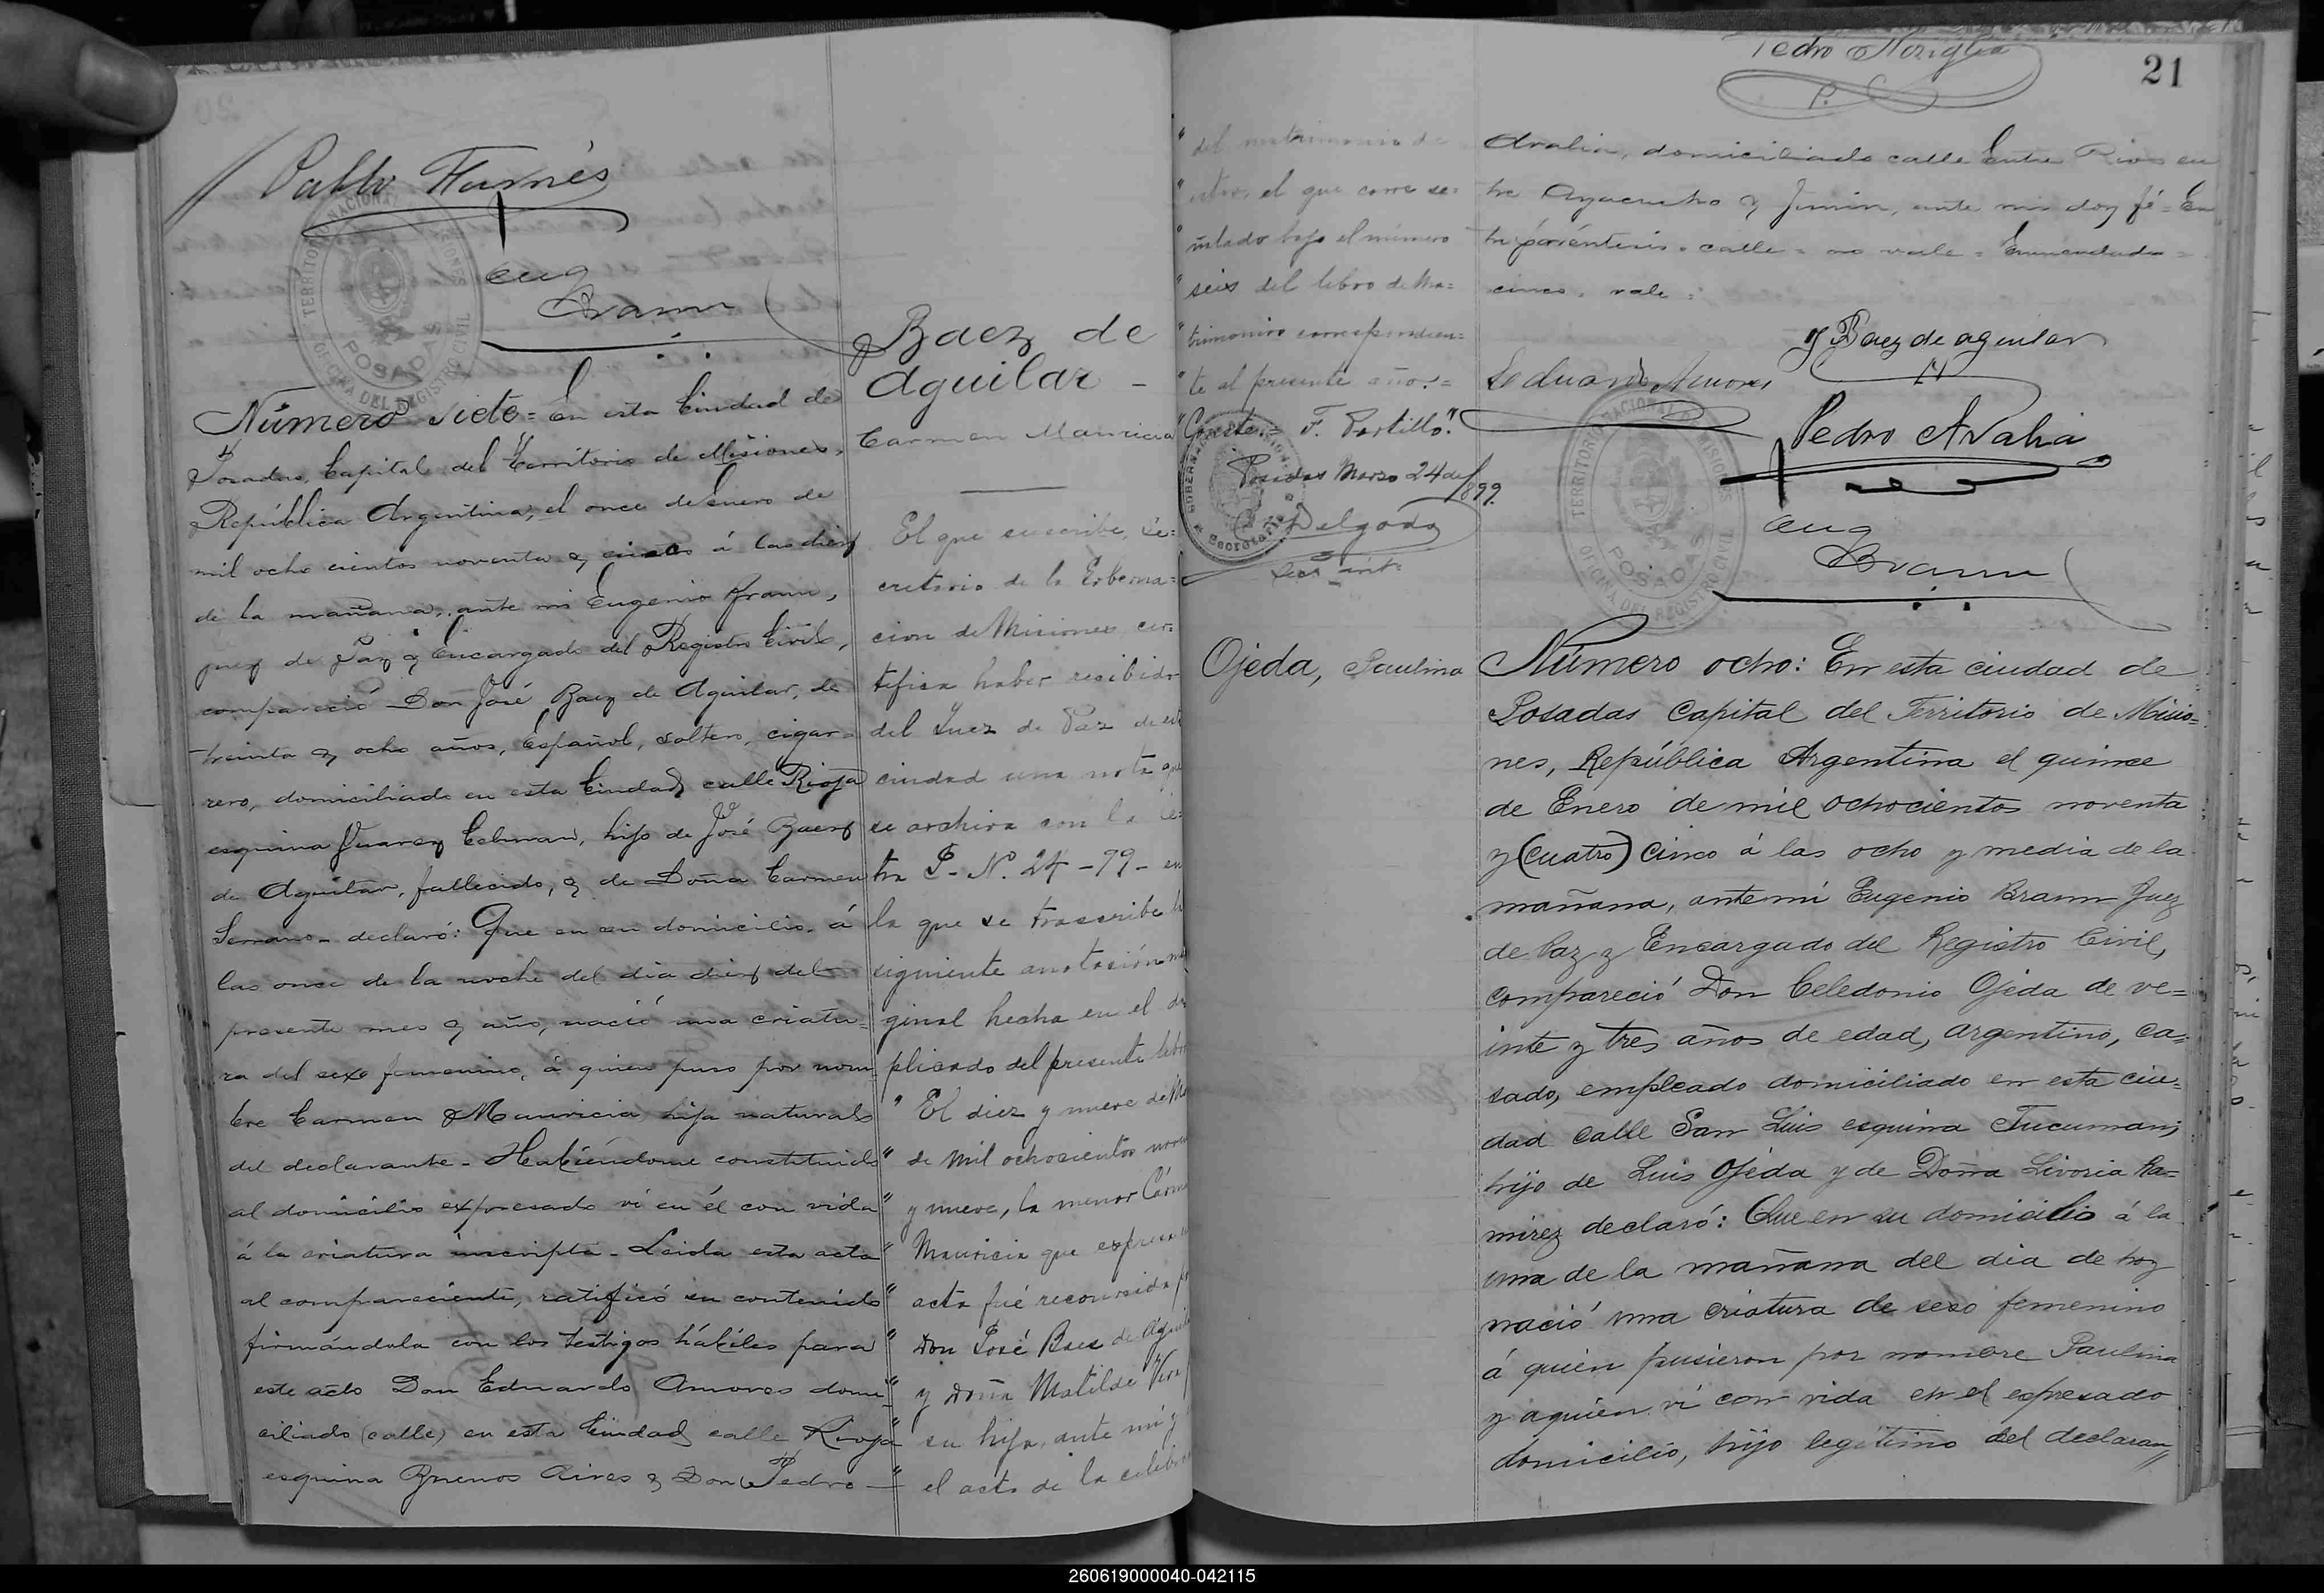 Pablo
TERRITORIO NACIONAL DE MISIONES
POSADAS
OFICINA DEL REGISTRO CIVIL
Eug
Braun
Número siete = En esta Ciudad de
Posadas, Capital del Territorio de Misiones,
República Argentina, el once de Enero de
mil ocho cientos noventa y cinco á las diez
de la mañana, ante mi Eugenio Braun,
juez de Paz y Encargado del Registro Civil,
compareció Don José Baez de Aguilar, de
treinta y ocho años, Español, soltero, cigar=
rero, domiciliado en esta Ciudad calle Rioja
esquina Juarez Celman, hijo de José Baez
de Aguilar, fallecido, y de Doña Carmen
Serrano - declaró: Que en su domicilio á
las once de la noche del dia diez del
presente mes y año, nació una criatu=
ra del sexo femenino, á quien puso por nom=
bre Carmen Mauricia hija natural
del declarante - Habiéndome constituido
al domicilio expresado vi en él con vida
á la criatura inscripta - Leida esta acta
al compareciente, ratificó su contenido
firmándola con los testigos hábiles para
este acto Don Eduardo Amores domi=
ciliado (calle) en esta Ciudad calle Rioja
esquina Buenos Aires y Don Pedro
Baez de
Aguilar -
Carmen Mauricia
El que suscribe, Se=
cretario de la Goberna=
cion de Misiones, cer=
tifica haber recibido
del Juez de Paz de esta
ciudad una nota que
se archiva con la le=
tra P - Nº. 24 - 99 - en
la que se trascribe la
siguiente anotación mar
ginal hecha en el du
plicado del presente libro
" El diez y nueve de
" de mil ochocientos noven
" y nueve, la menor Cármen
" Mauricia que expresa
" acta fué reconocida por
" Don José Baez de Aguilar
" y Doña Matilde
" su hija, ante mí y
" el acto de la celebra
" del matrimonio de
" estos, el que corre se=
" ñalado bajo el número
" seis del libro de Ma=
" trimonios correspondien=
" te al presente año. =
" Conste = F. Portillo."
Posadas Marzo 24 de 1899.
Delgado
Secretaria
Ojeda, Paulina
Pedro
P.
21
Avalia, domiciliado calle Entre Rios en
tre Ayacucho y Junin, ante mi doy fé = En
tre paréntesis = calle = no vale = Enmendado =
cinco = vale =
J Baez de aguilar
Eduardo Amores
Pedro Avalia
TERRITORIO NACIONAL DE MISIONES
POSADAS
OFICINA DEL REGISTRO CIVIL
Eug
Braun
Número ocho: En esta ciudad de
Posadas Capital del Territorio de Misio=
nes, República Argentina el quince
de Enero de mil ochocientos noventa
y (cuatro) cinco á las ocho y media de la
mañana, ante mí Eugenio Braun Juez
de Paz y Encargado del Registro Civil,
compareció Don Celedonio Ojeda de ve=
inte y tres años de edad, argentino, ca=
sado, empleado domiciliado en esta ciu=
dad calle San Luis esquina Tucuman;
hijo de Luis Ojeda y de Doña Livoria Ra=
mirez declaró: Que en su domicilio á la
una de la mañana del dia de hoy
nació una criatura de sexo femenino
á quién pusieron por nombre Paulina
y a quién vi con vida en el espresado
domicilio, hijo legitimo del declaran
260619000040-042115